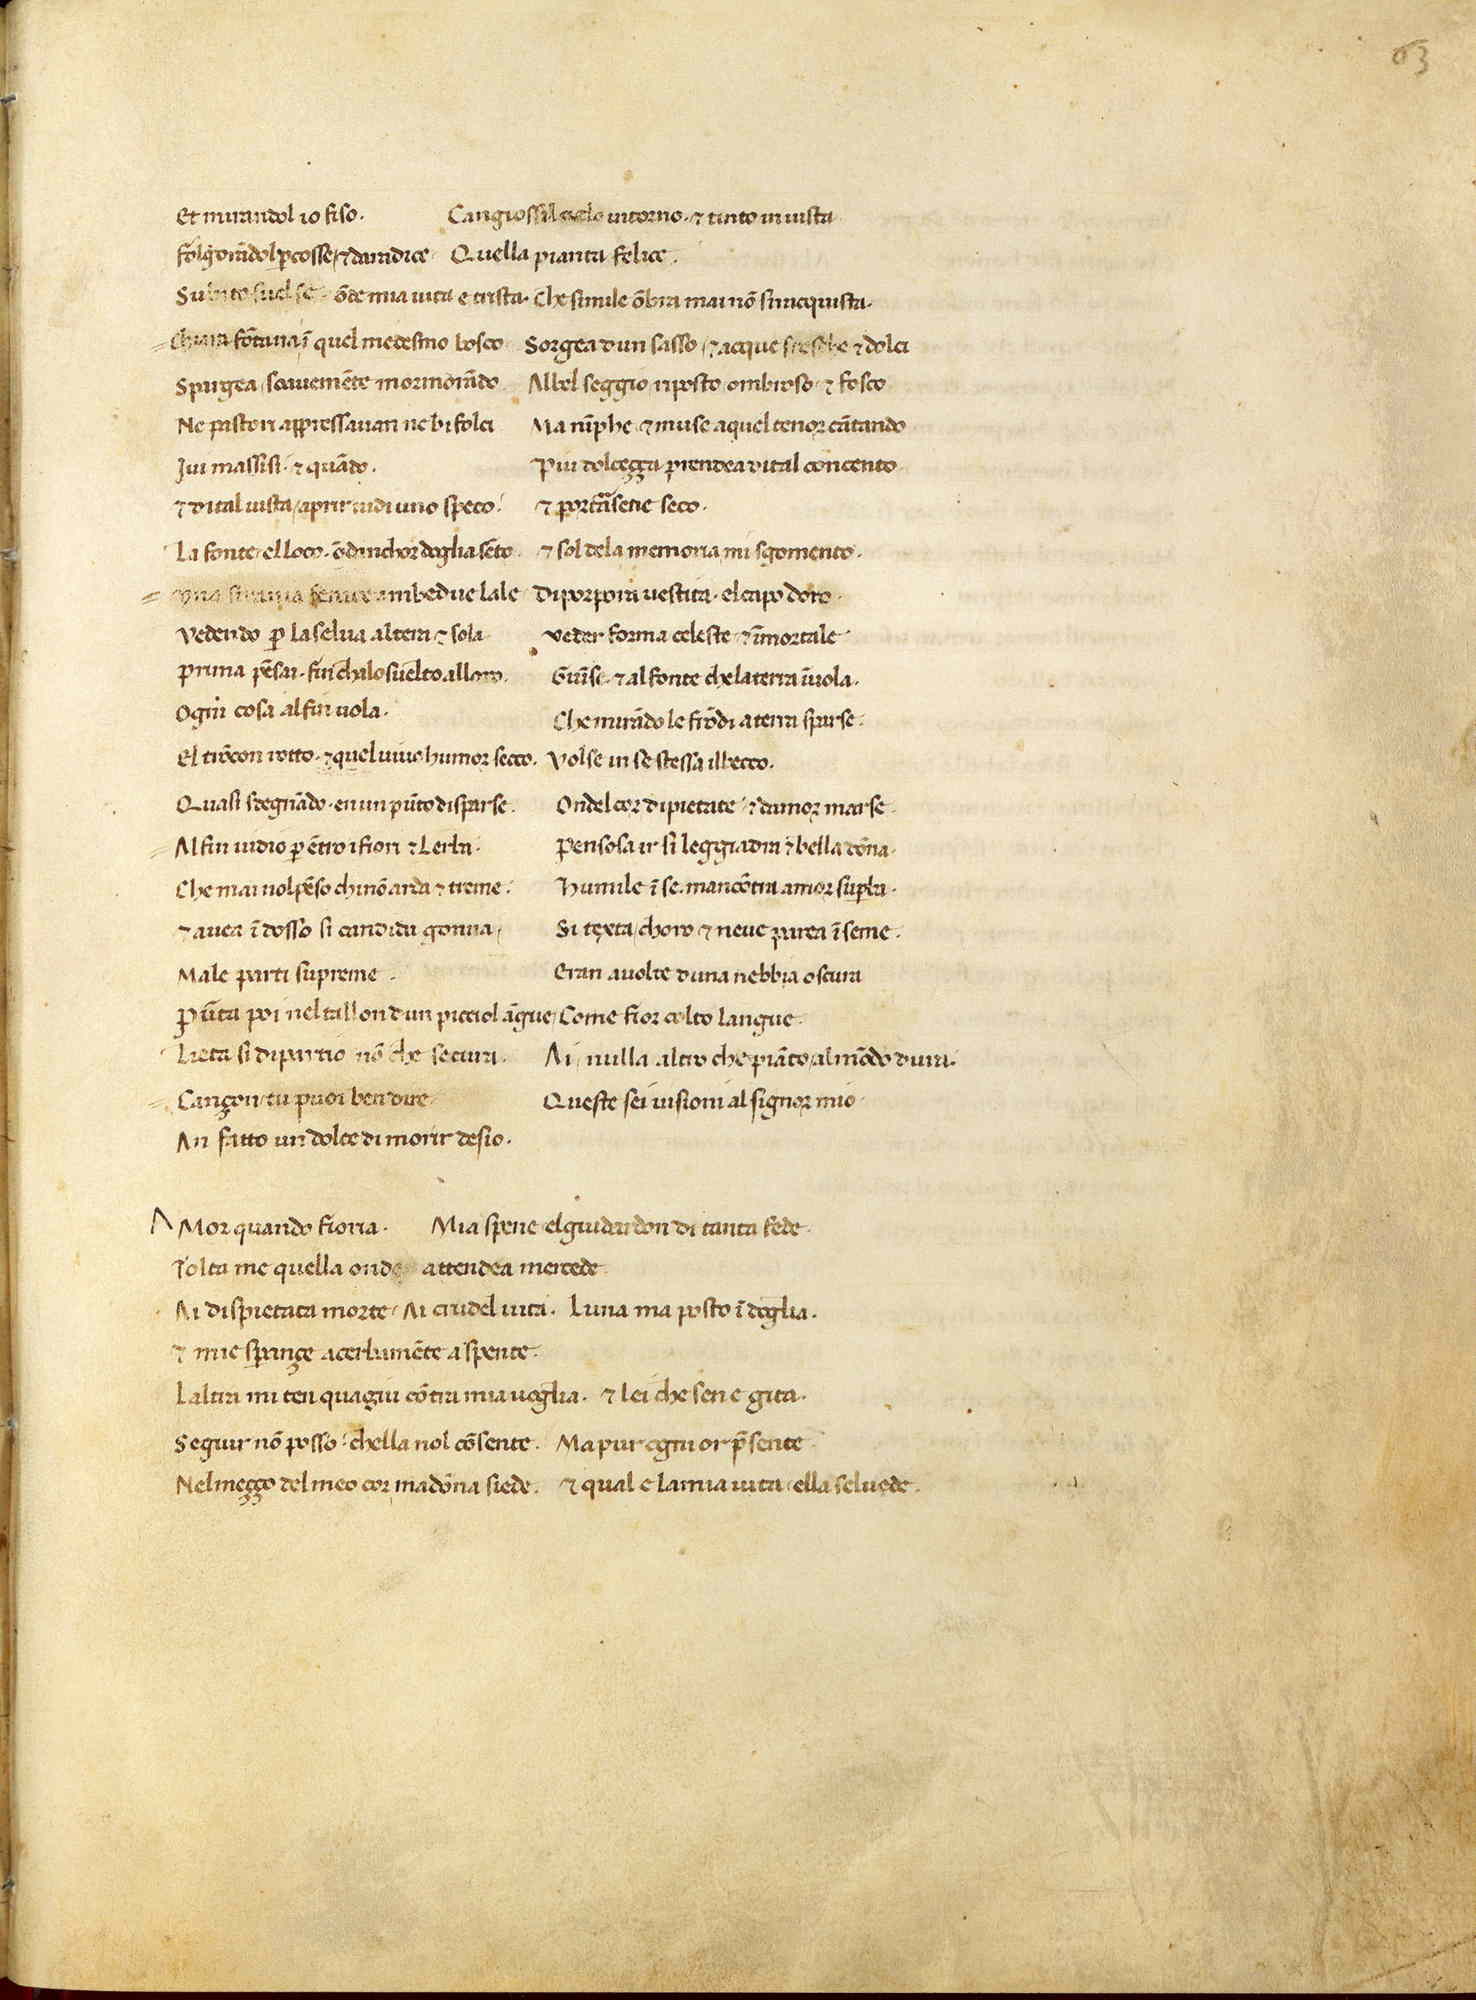 63
Et mirandol io fiso. Cangiossi il cielo intorno. ⁊ tinto in uista
folgorādol ꝑcosse, ⁊ da radice Quella pianta felice.
Subito suelse. ōde mia uita e trista. Che simile ōbra mai nō si racquista.
Chiara fōtana ī quel medesmo bosco Sorgea dun sasso, ⁊ acque fresche ⁊ dolci
Spargea, soauemēte mormorādo Albel seggio riposto, ombroso, ⁊ fosco
Ne pastori appressauan ne bifolci Ma nīphe, ⁊ muse aquel tenor cātando
Iui massisi. ⁊ quādo. Piu dolceçça prendea di tal concento
⁊ di tal uista, aprir uidi uno speco. ⁊ portārsene seco.
La fonte, el loco. ōdanchor doglia sēto. ⁊ sol dela memoria, mi sgomento.
Una strania fenice ambedue lale Di porpora uestita. el capo doro.
Vedendo ꝑ la selua altera ⁊ sola veder forma celeste ⁊ īmortale
prima pēsai. fin chalo suelto alloro. Giūse. ⁊ al fonte che la terra īuola.
Ogni cosa al fin uola. Che mirādo le frōdi a terra sparse.
El trōcon rotto. ⁊ quel uiuo humor secco. Volse in se stessa il becco.
Quasi sdegnādo. en un pūto disparse. Ondel cor di pietate, ⁊ damor marse.
Alfin uidio ꝑ ētro i fiori ⁊ lerba. Pensosa ir si leggiadra ⁊ bella dōna.
Che mai nol pēso chi nō arda ⁊ treme. Humile ī se. mancōtra amor suꝑba.
⁊ auea ī dosso si candida gonna, Si texta, choro ⁊ neue parea īseme.
Ma le parti supreme. Eran auolte duna nebbia oscura
Pūta poi nel tallon dun picciol āngue, Come fior colto langue.
Lieta si dipartio nō che secura. Ai, nulla altro che piāto, al mōdo dura.
Cançon, tu puoi ben dire Queste sei uisioni al signor mio.
An fatto un dolce di morir desio.
AMor quando fioria. Mia spene, el guidardon di tanta fede.
Tolta me quella onde attendea mercede
Ai dispietata morte, Ai crudel uita. Luna ma posto ī doglia.
⁊ mie sperançe acerbamēte a spente.
Laltra mi ten quagiu cōtra mia uoglia. ⁊ lei che sen e gita.
Seguir nō posso, chella nol cōsente. Ma pur ogni or p̄sente
Nel meçço del meo cor madōna siede. ⁊ qual e la mia uita, ella sel uede.